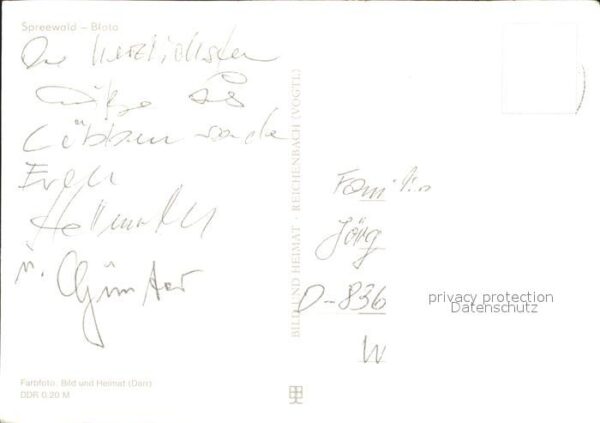 Spreewald – Błota
Die herzlichsten
Grüße aus
Lübben sendet
Euch
Helmuth
u. Günter
BILD UND HEIMAT · REICHENBACH (VOGTL)
Familie
Jörg
D-836
W
privacy protection
Datenschutz
Farbfoto: Bild und Heimat (Darr)
DDR 0.20 M